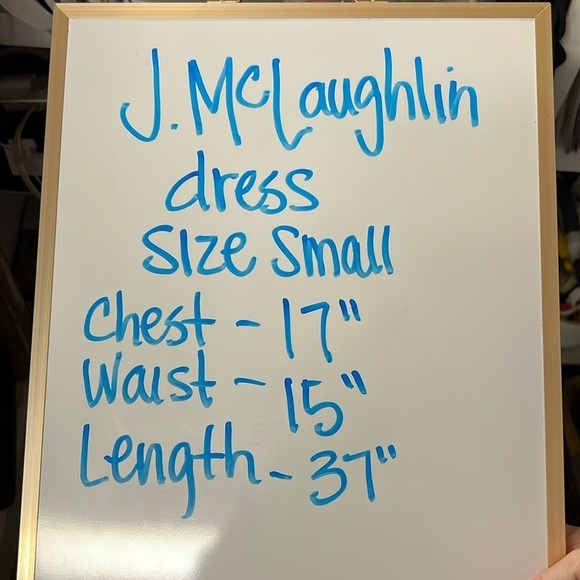 J. McLaughlin
dress
Size Small
Chest - 17"
Waist - 15"
Length - 37"